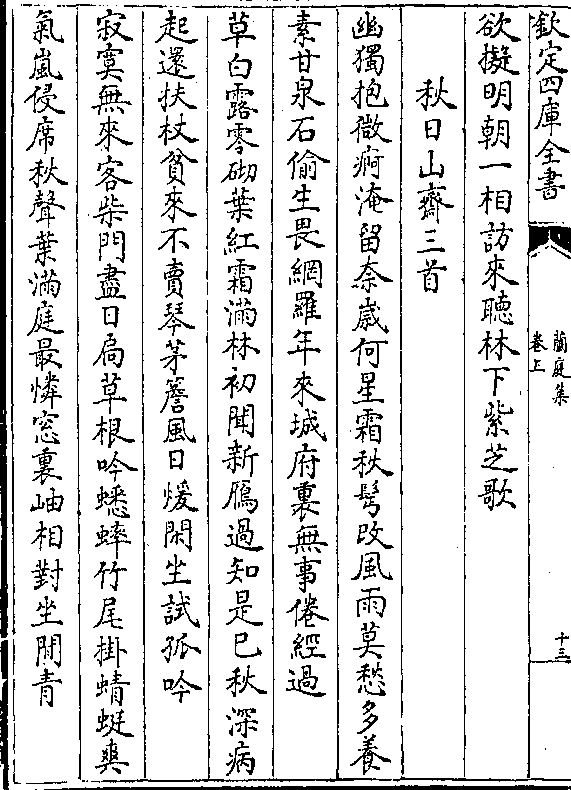 欽定四庫全書
蘭庭集
卷上
十三
欲擬明朝一相訪來聽林下紫芝歌
秋日山齋三首
幽獨抱微痾淹留奈歲何星霜秋鬂改風雨莫愁多養
素甘泉石偷生畏網羅年來城府裏無事倦經過
草白露零砌葉紅霜滿林初聞新鴈過知是已秋深病
起還扶杖貧來不賣琴茅簷風日煖閑坐試孤吟
寂寞無來客柴門盡日扃草根吟蟋蟀竹尾掛蜻蜓爽
氣嵐侵席秋聲葉滿庭最憐窓裏岫相對坐閒青